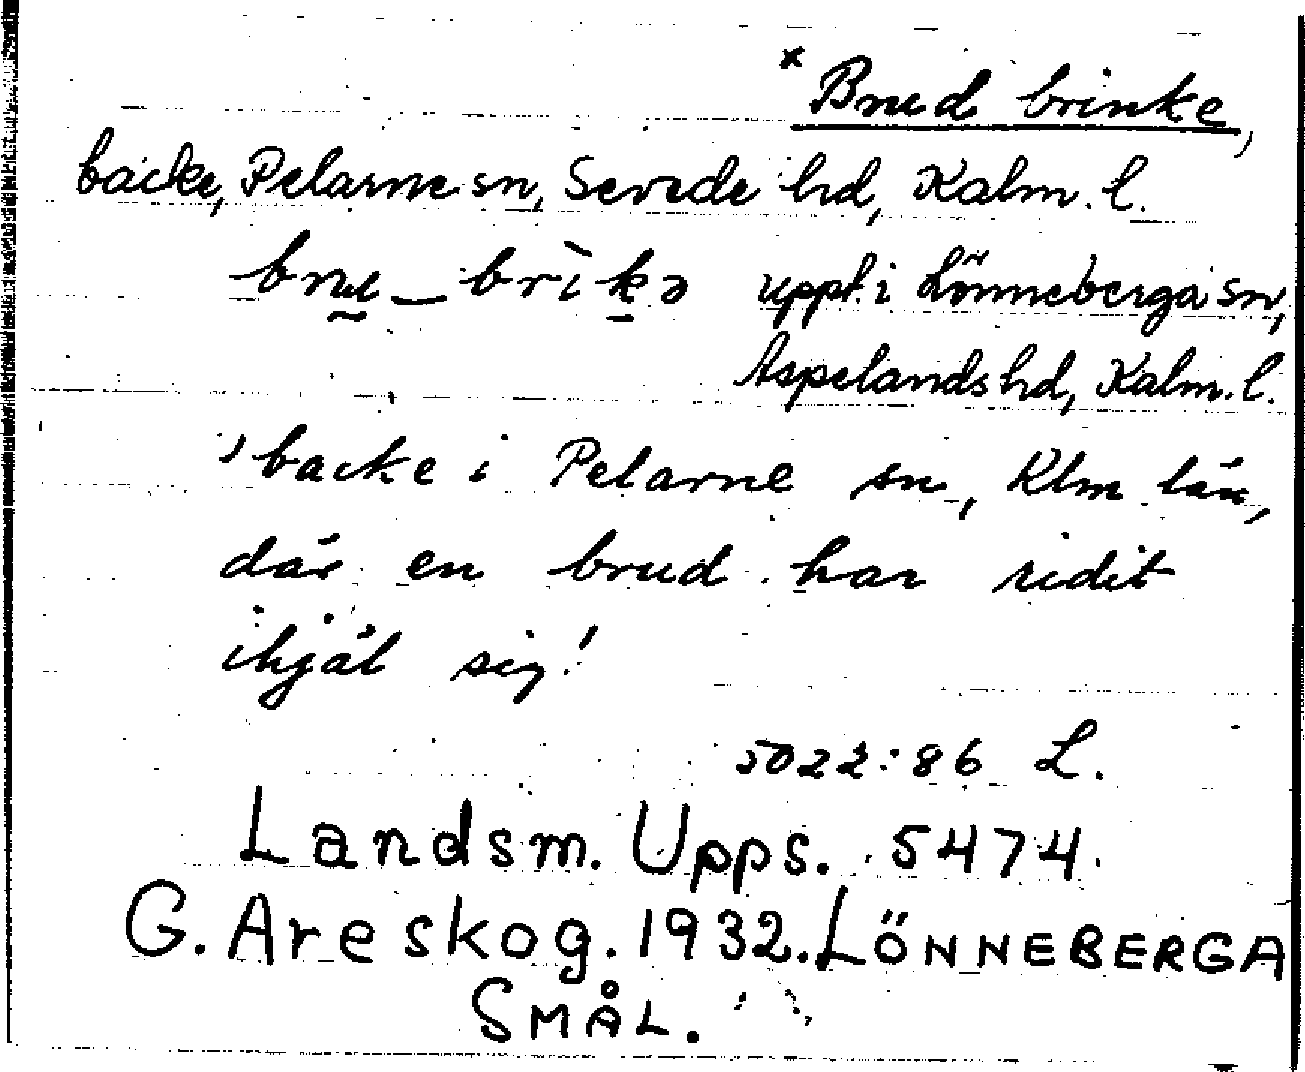 * Brud brinke,
backe, Pelarne sn, Sevede hd, Kalm. l.
uppt. i Lönneberga sn,
Aspelands hd, Kalm. l.
'backe i Pelarne sn, Klm län,
där en brud har ridit
ihjäl sig!
5022:86 L.
Landsm. Upps. 5474.
G. Areskog. 1932. LÖNNEBERGA
SMÅL.